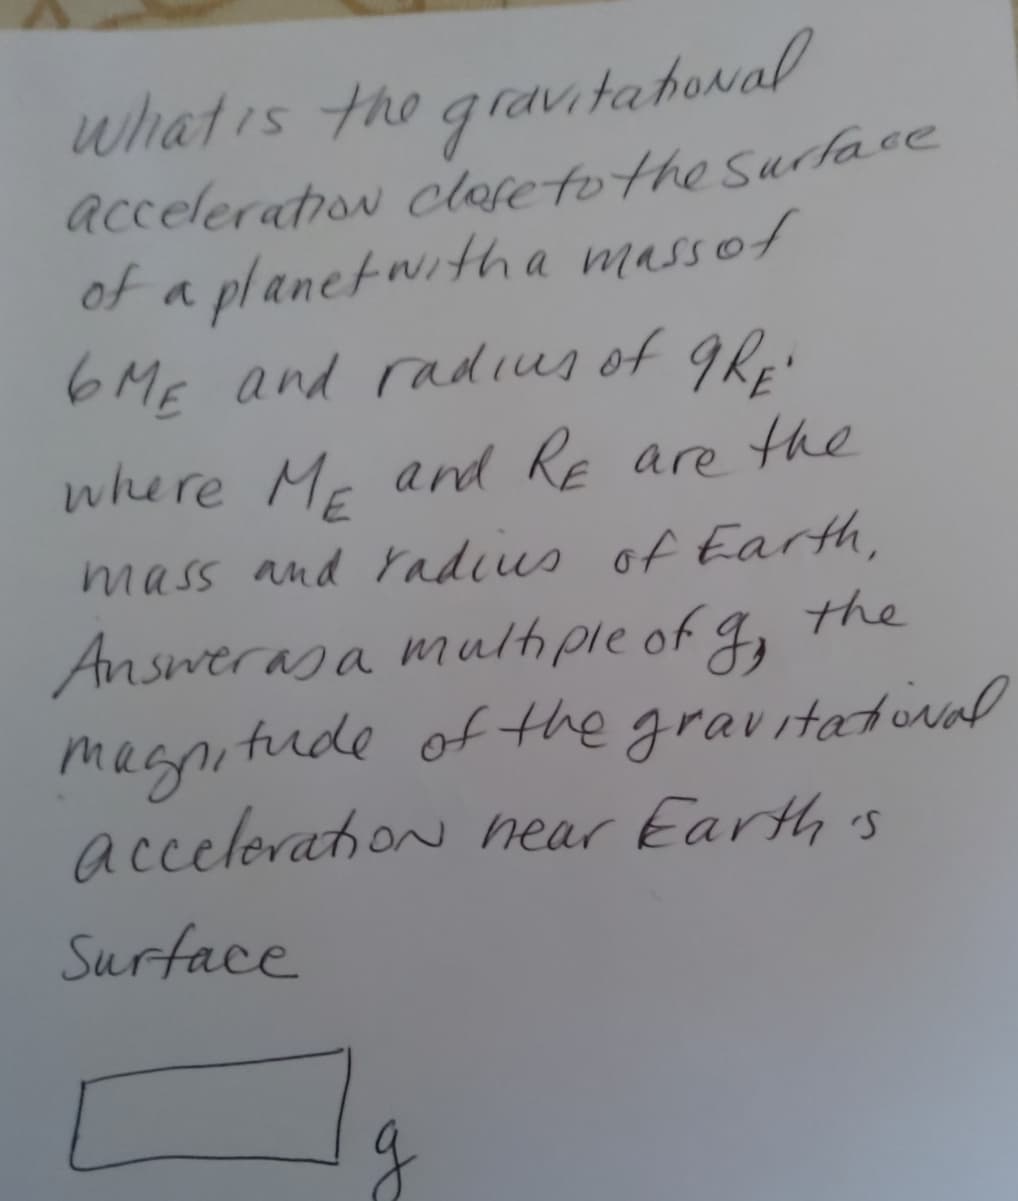 What is the gravitational
acceleration close to the surface
of a planet with a mass of
6 M_E and radius of 9R_E.
where M_E and R_E are the
mass and radius of Earth,
Answer as a multiple of g, the
magnitude of the gravitational
acceleration near Earth's
Surface
g